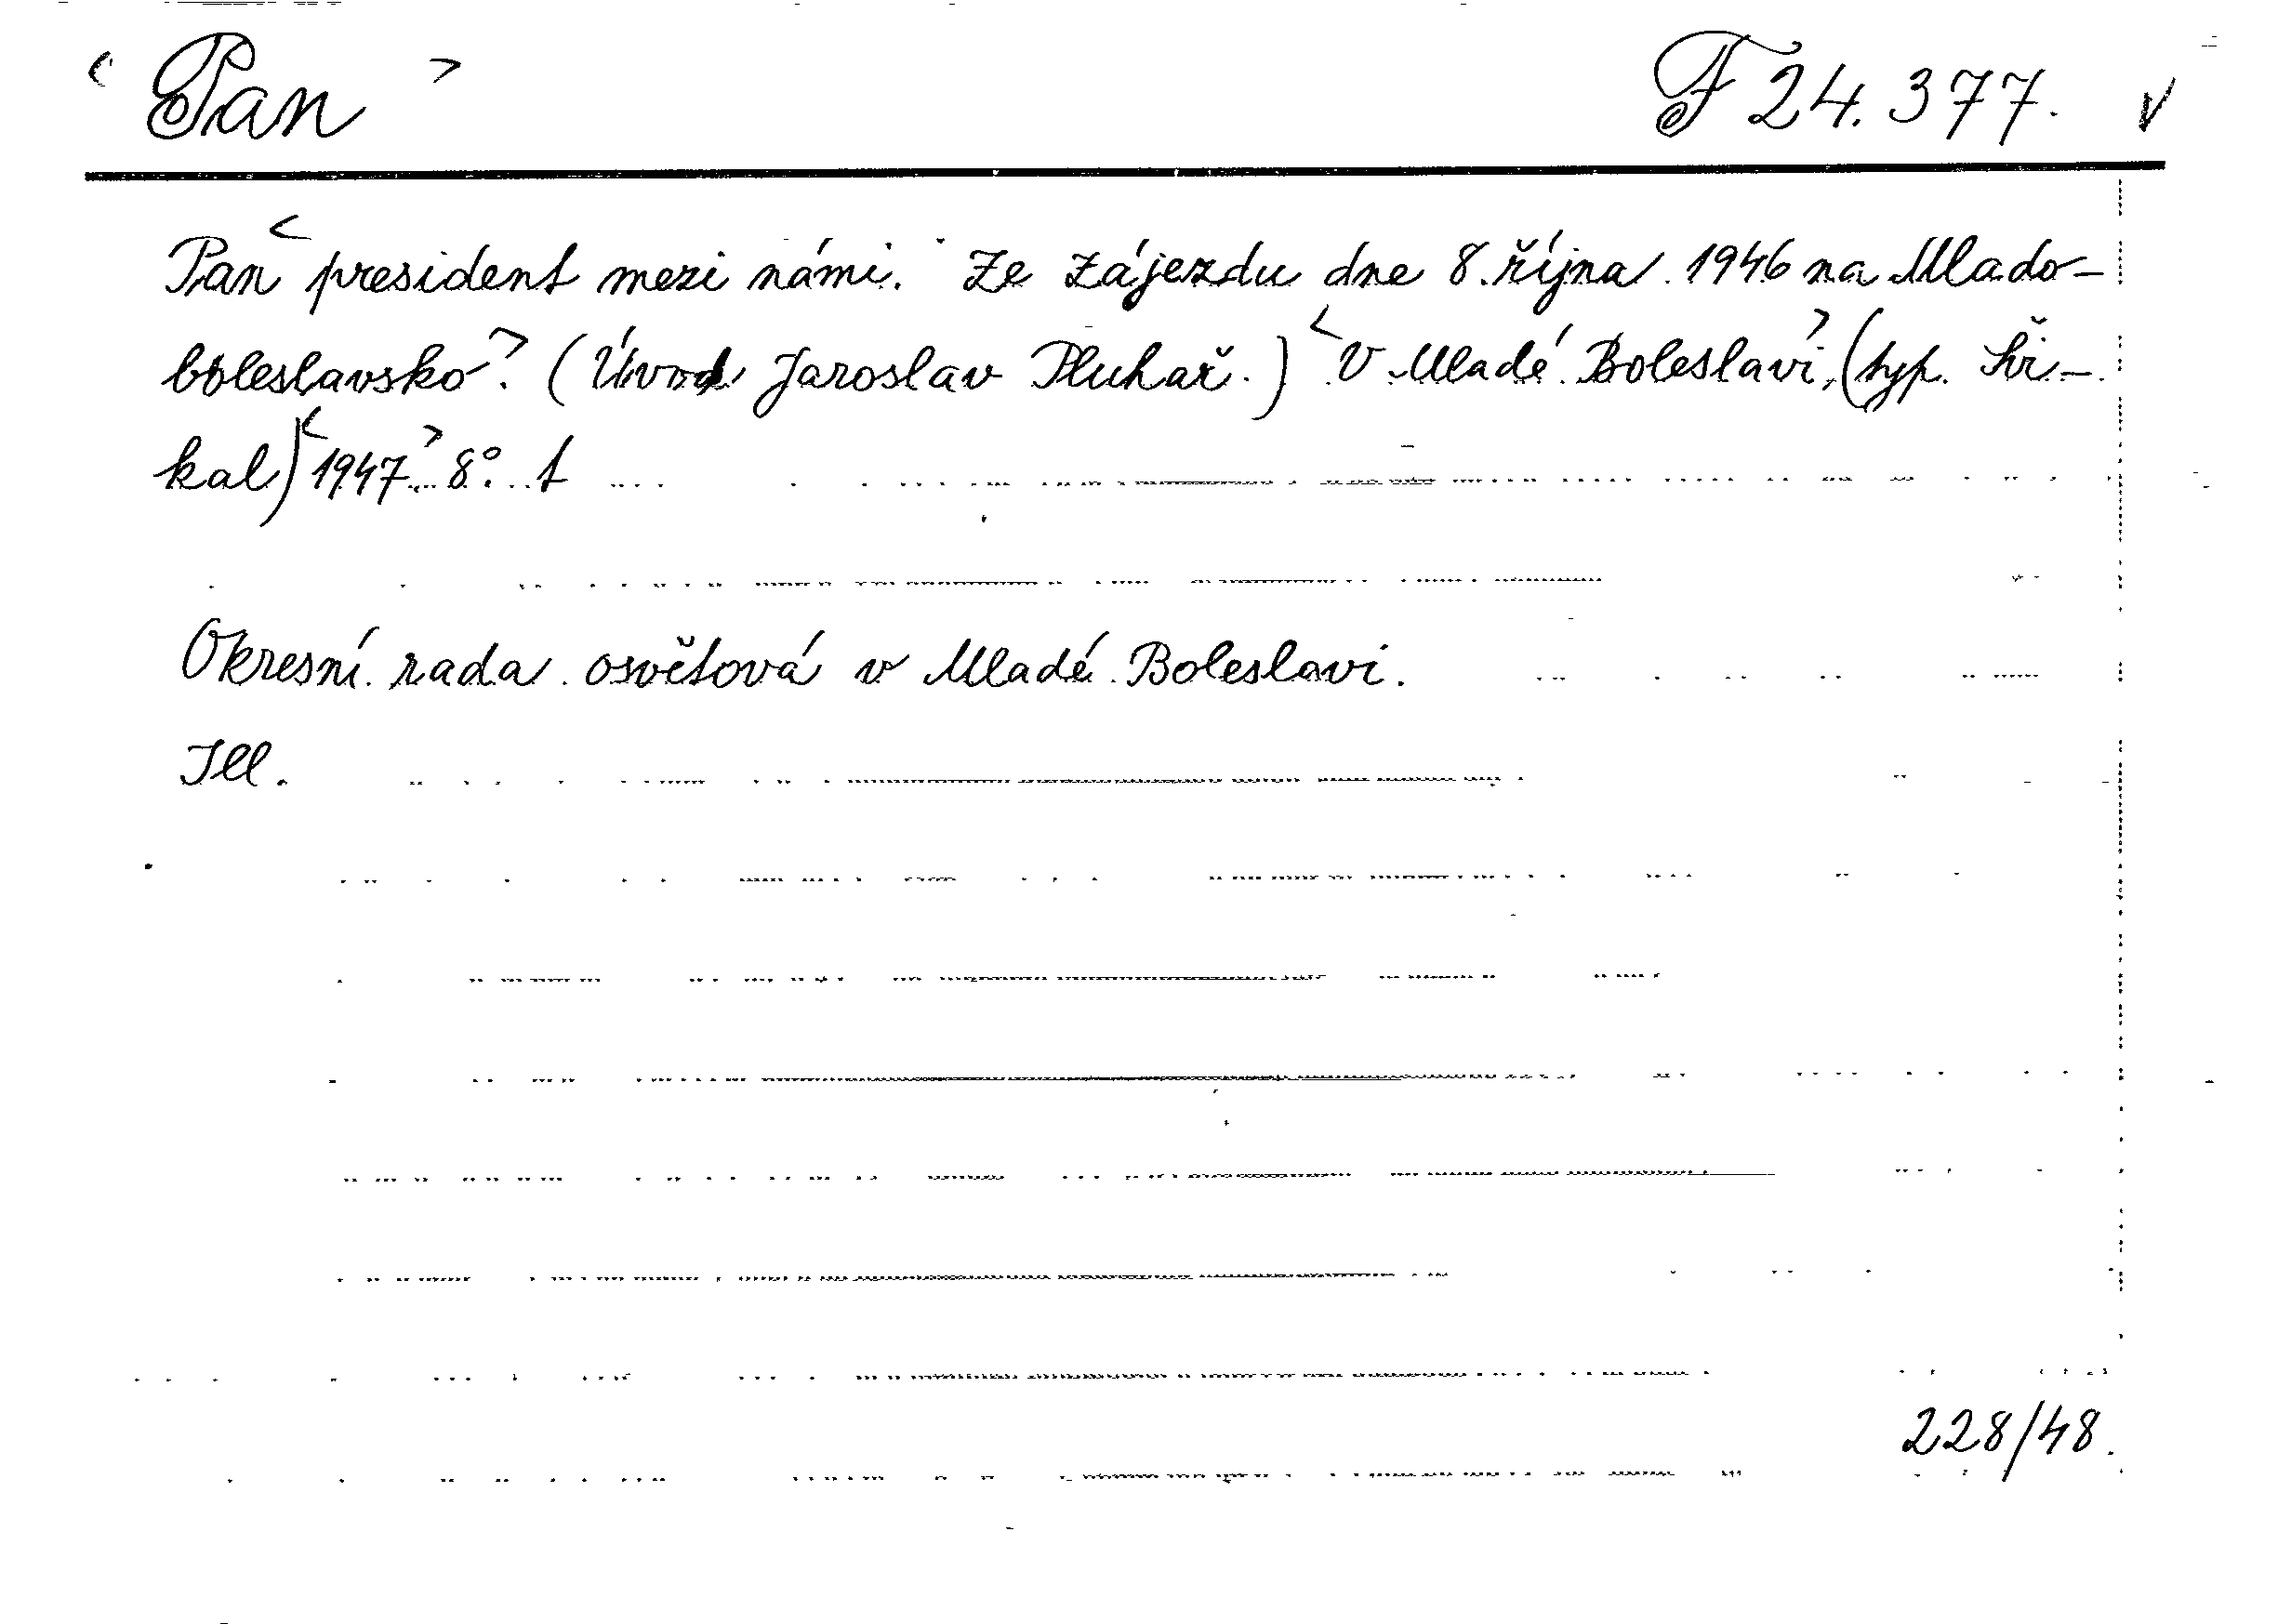 < Pan > F 24.377. v
Pan < president mezi námi. Ze zájezdu dne 8. října 1946 na Mlado-
boleslavsko >. (Úvod Jaroslav Pluhař.) < V Mladé Boleslavi >, (typ. Ští-
kal) < 1947 >. 8°. t
Okresní rada osvětová v Mladé Boleslavi.
Ill.
228/48.